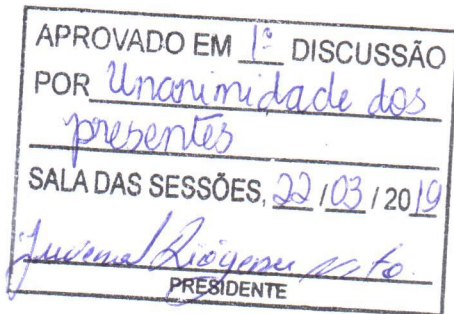 APROVADO EM 1ª DISCUSSÃO
POR Unanimidade dos
presentes
SALA DAS SESSÕES, 22 / 03 / 2019
PRESIDENTE